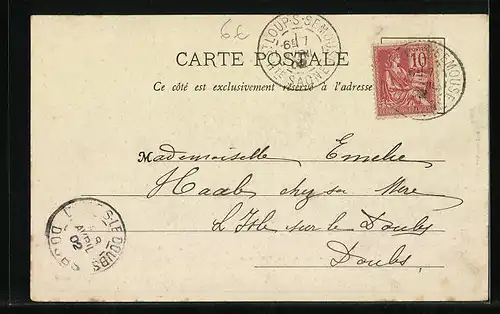 66
CARTE POSTALE
Ce côté est exclusivement réservé à l'adresse
ST LOUP-S-SEMOUSE
6E
02
HTE SAÔNE
10
SEMOUSE
Mademoiselle Emelie
Haab chez sa Mère
L'Isle sur le Doubs
Doubs
S-LE DOUBS
AVRIL
02